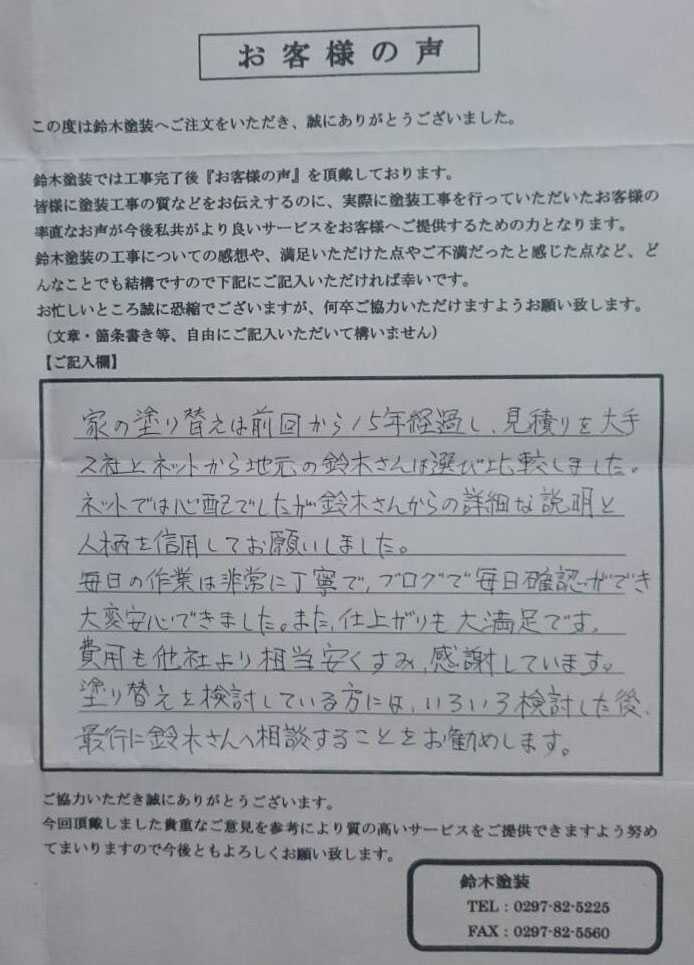 お客様の声
この度は鈴木塗装へご注文をいただき、誠にありがとうございました。
鈴木塗装では工事完了後『お客様の声』を頂戴しております。
皆様に塗装工事の質などをお伝えするのに、実際に塗装工事を行っていただいたお客様の
率直なお声が今後私共がより良いサービスをお客様へご提供するための力となります。
鈴木塗装の工事についての感想や、満足いただけた点やご不満だったと感じた点など、ど
んなことでも結構ですので下記にご記入いただければ幸いです。
お忙しいところ誠に恐縮でございますが、何卒ご協力いただけますようお願い致します。
（文章・箇条書き等、自由にご記入いただいて構いません）
【ご記入欄】
家の塗り替えは前回から15年経過し、見積りを大手
2社とネットから地元の鈴木さんは選び比較しました。
ネットでは心配でしたが鈴木さんからの詳細な説明と
人柄を信用してお願いしました。
毎日の作業は非常に丁寧で、ブログで毎日確認ができ
大変安心できました。また、仕上がりも大満足です。
費用も他社より相当安くすみ、感謝しています。
塗り替えを検討している方には、いろいろ検討した後、
に鈴木さんへ相談することをお勧めします。
ご協力いただき誠にありがとうございます。
今回頂戴しました貴重なご意見を参考により質の高いサービスをご提供できますよう努め
てまいりますので今後ともよろしくお願い致します。
鈴木塗装
TEL：0297-82-5225
FAX：0297-82-5560